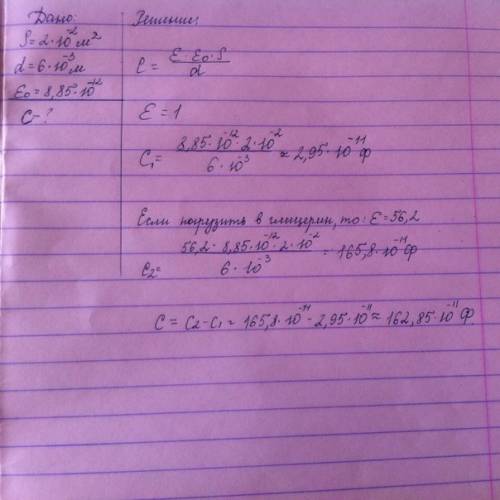 Дано:
S = 2·10⁻² м²
d = 6·10⁻³ м
ε₀ = 8,85·10⁻¹²
C - ?
Решение:
C = ε·ε₀·S / d
ε = 1
C₁ = 8,85·10⁻¹²·2·10⁻² / 6·10⁻³ ≈ 2,95·10⁻¹¹ Ф
Если погрузить в глицерин, то: ε = 56,2
C₂ = 56,2·8,85·10⁻¹²·2·10⁻² / 6·10⁻³ = 165,8·10⁻¹¹ Ф
C = C₂ - C₁ = 165,8·10⁻¹¹ - 2,95·10⁻¹¹ ≈ 162,85·10⁻¹¹ Ф.